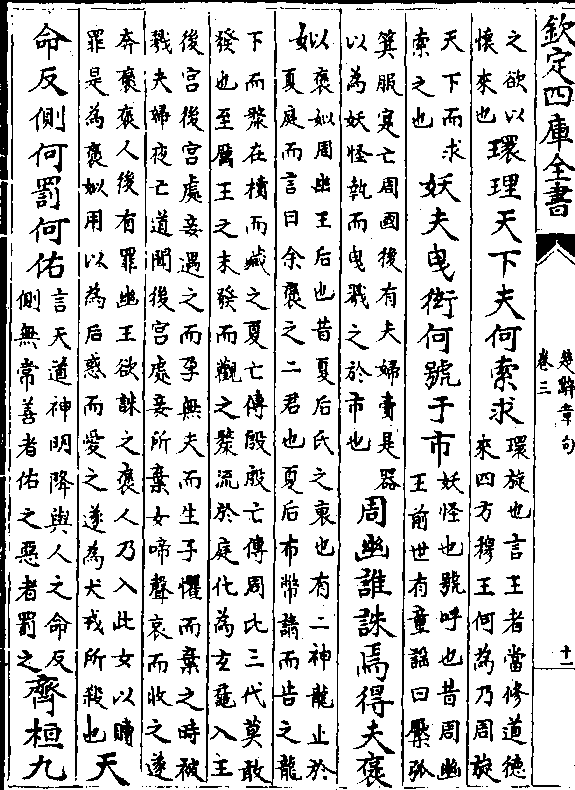 欽定四庫全書
楚辭章句
卷三
十一
之欲以
懷來也
環理天下夫何索求
環旋也言王者當修道德
來四方穆王何為乃周旋
天下而求
索之也
妖夫曳衒何號于市
妖怪也號呼也昔周幽
王前世有童謡曰檿弧
箕服寔亡周國後有夫婦賣是器
以為妖怪執而曳戮之於市也
周幽誰誅焉得夫褒
姒
褒姒周幽王后也昔夏后氏之衰也有二神龍止於
夏庭而言曰余褒之二君也夏后布幣糈而告之龍
下而漦在櫝而藏之夏亡傳殷殷亡傳周比三代莫敢
發也至厲王之末發而觀之漦流於庭化為玄黿入王
後宫後宫處妾遇之而孕無夫而生子懼而棄之時被
戮夫婦夜亡道聞後宫處妾所棄女啼聲哀而收之遂
奔褒褒人後有罪幽王欲誅之褒人乃入此女以贖
罪是為褒姒用以為后惑而愛之遂為犬戎所殺也
天
命反側何罰何佑
言天道神明降與人之命反
側無常善者佑之惡者罰之
齊桓九